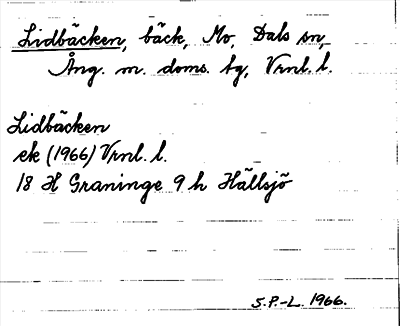 Lidbäcken, bäck, Mo, Dals sn,
Ång. m. doms. tg, Vrnl. l.
Lidbäcken
ek (1966) Vrnl. l.
18 H Graninge 9 h Hällsjö
S.P.-L. 1966.